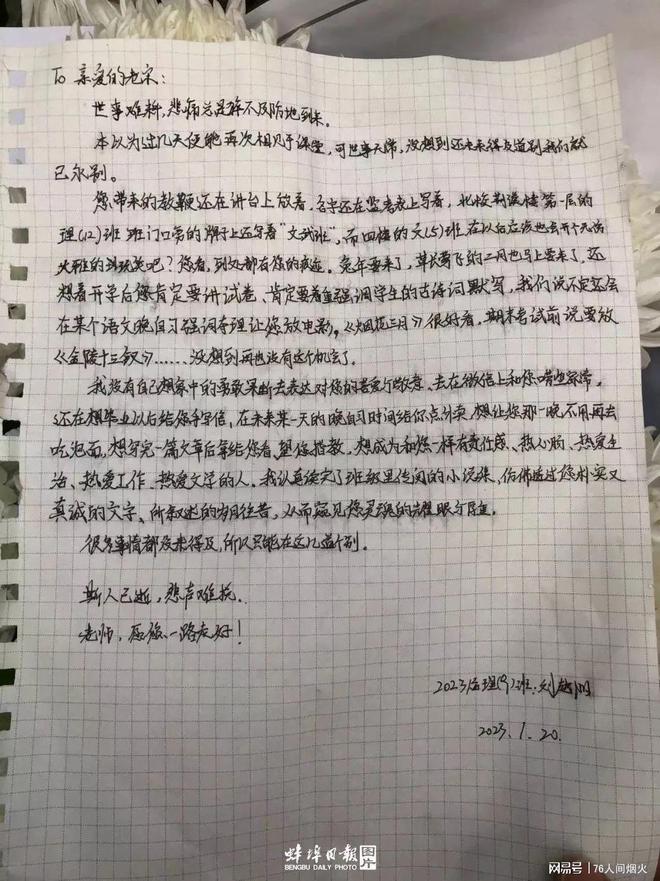 To 亲爱的老宋：
世事难料，悲痛总是猝不及防地到来。
本以为过几天便能再次相见于课堂，可世事无常，没想到还未来得及道别我们就
已永别。
您带来的教鞭还在讲台上放着，名字还在监考表上写着，北校勤谨楼第一层的
理(12)班 班门口旁的牌子上还写着“文武班”，而四楼的文(5)班在以后应该也会开个无伤
大雅的玩笑吧？您看，到处都有您的痕迹。兔年要来了，草长莺飞的二月也马上要来了，还
想着开学后您肯定要讲试卷、肯定要着重强调学生的古诗词默写，我们说不定还会
在某个语文晚自习强词夺理让您放电影。《烟花三月》很好看，期末考试前说要放
《金陵十三钗》……没想到再也没有这个机会了。
我没有自己想象中的勇敢果断去表达对您的喜爱与敬意、去在微信上和您唠唠家常，
还在想毕业以后给您手写信，在未来某一天的晚自习时间给你点外卖，想让您那一晚不用再去
吃泡面，想写完一篇文章后寄给您看，望您指教，想成为和您一样有责任感、热心肠、热爱生
活、热爱工作、热爱文学的人。我认真读完了班级里传阅的小说集，仿佛透过您朴实又
真诚的文字、所叙述的岁月往昔，从而窥见您灵魂的耀眼与
很多事情都没来得及，所以只能在这儿道个别。
斯人已逝，悲声难挽。
老师，愿您一路走好！
2023届理(9)班：刘
2023.1.20.
蚌埠日报 图片
BENGBU DAILY PHOTO
网易号 | 76人间烟火